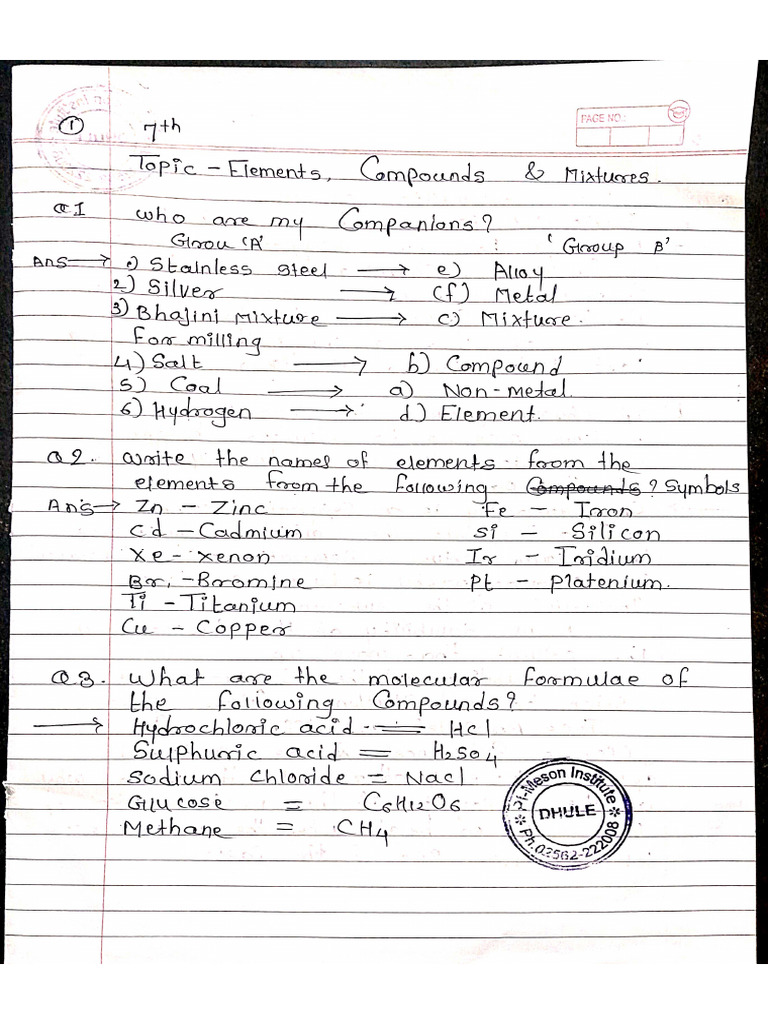 ① 7th
PAGE NO.:
Topic - Elements, Compounds & Mixtures.
Q1 who are my Companions?
Grou 'A' 'Group B'
Ans → 1) Stainless steel → e) Alloy
2) Silver → (f) Metal
3) Bhajini Mixture → c) Mixture.
For milling
4) Salt → b) Compound
5) Coal → a) Non-metal.
6) Hydrogen → d) Element.
Q2. Write the names of elements from the
elements from the following Compounds? Symbols
Ans → Zn - Zinc Fe - Iron
Cd - Cadmium Si - Silicon
Xe - Xenon Ir - Iridium
Br, - Bromine Pt - Platenium.
Ti - Titanium
Cu - Copper
Q3. What are the molecular formulae of
the following Compounds?
→ Hydrochloric acid = Hcl
Sulphuric acid = H2SO4
Sodium chloride = Nacl
Glucose = C6H12O6
Methane = CH4
Pi-Meson Institute
DHULE
Ph.02562-222008